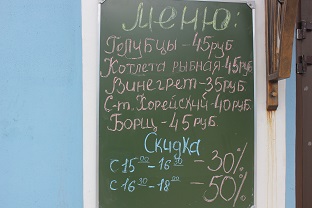 Меню:
Голубцы - 45 руб
Котлета рыбная - 45 руб
Винегрет - 35 руб
С-т. Корейский - 40 руб.
Борщ - 45 руб.
Скидка
с 15⁰⁰ - 16³⁰ - 30%
с 16³⁰ - 18⁰⁰ - 50%